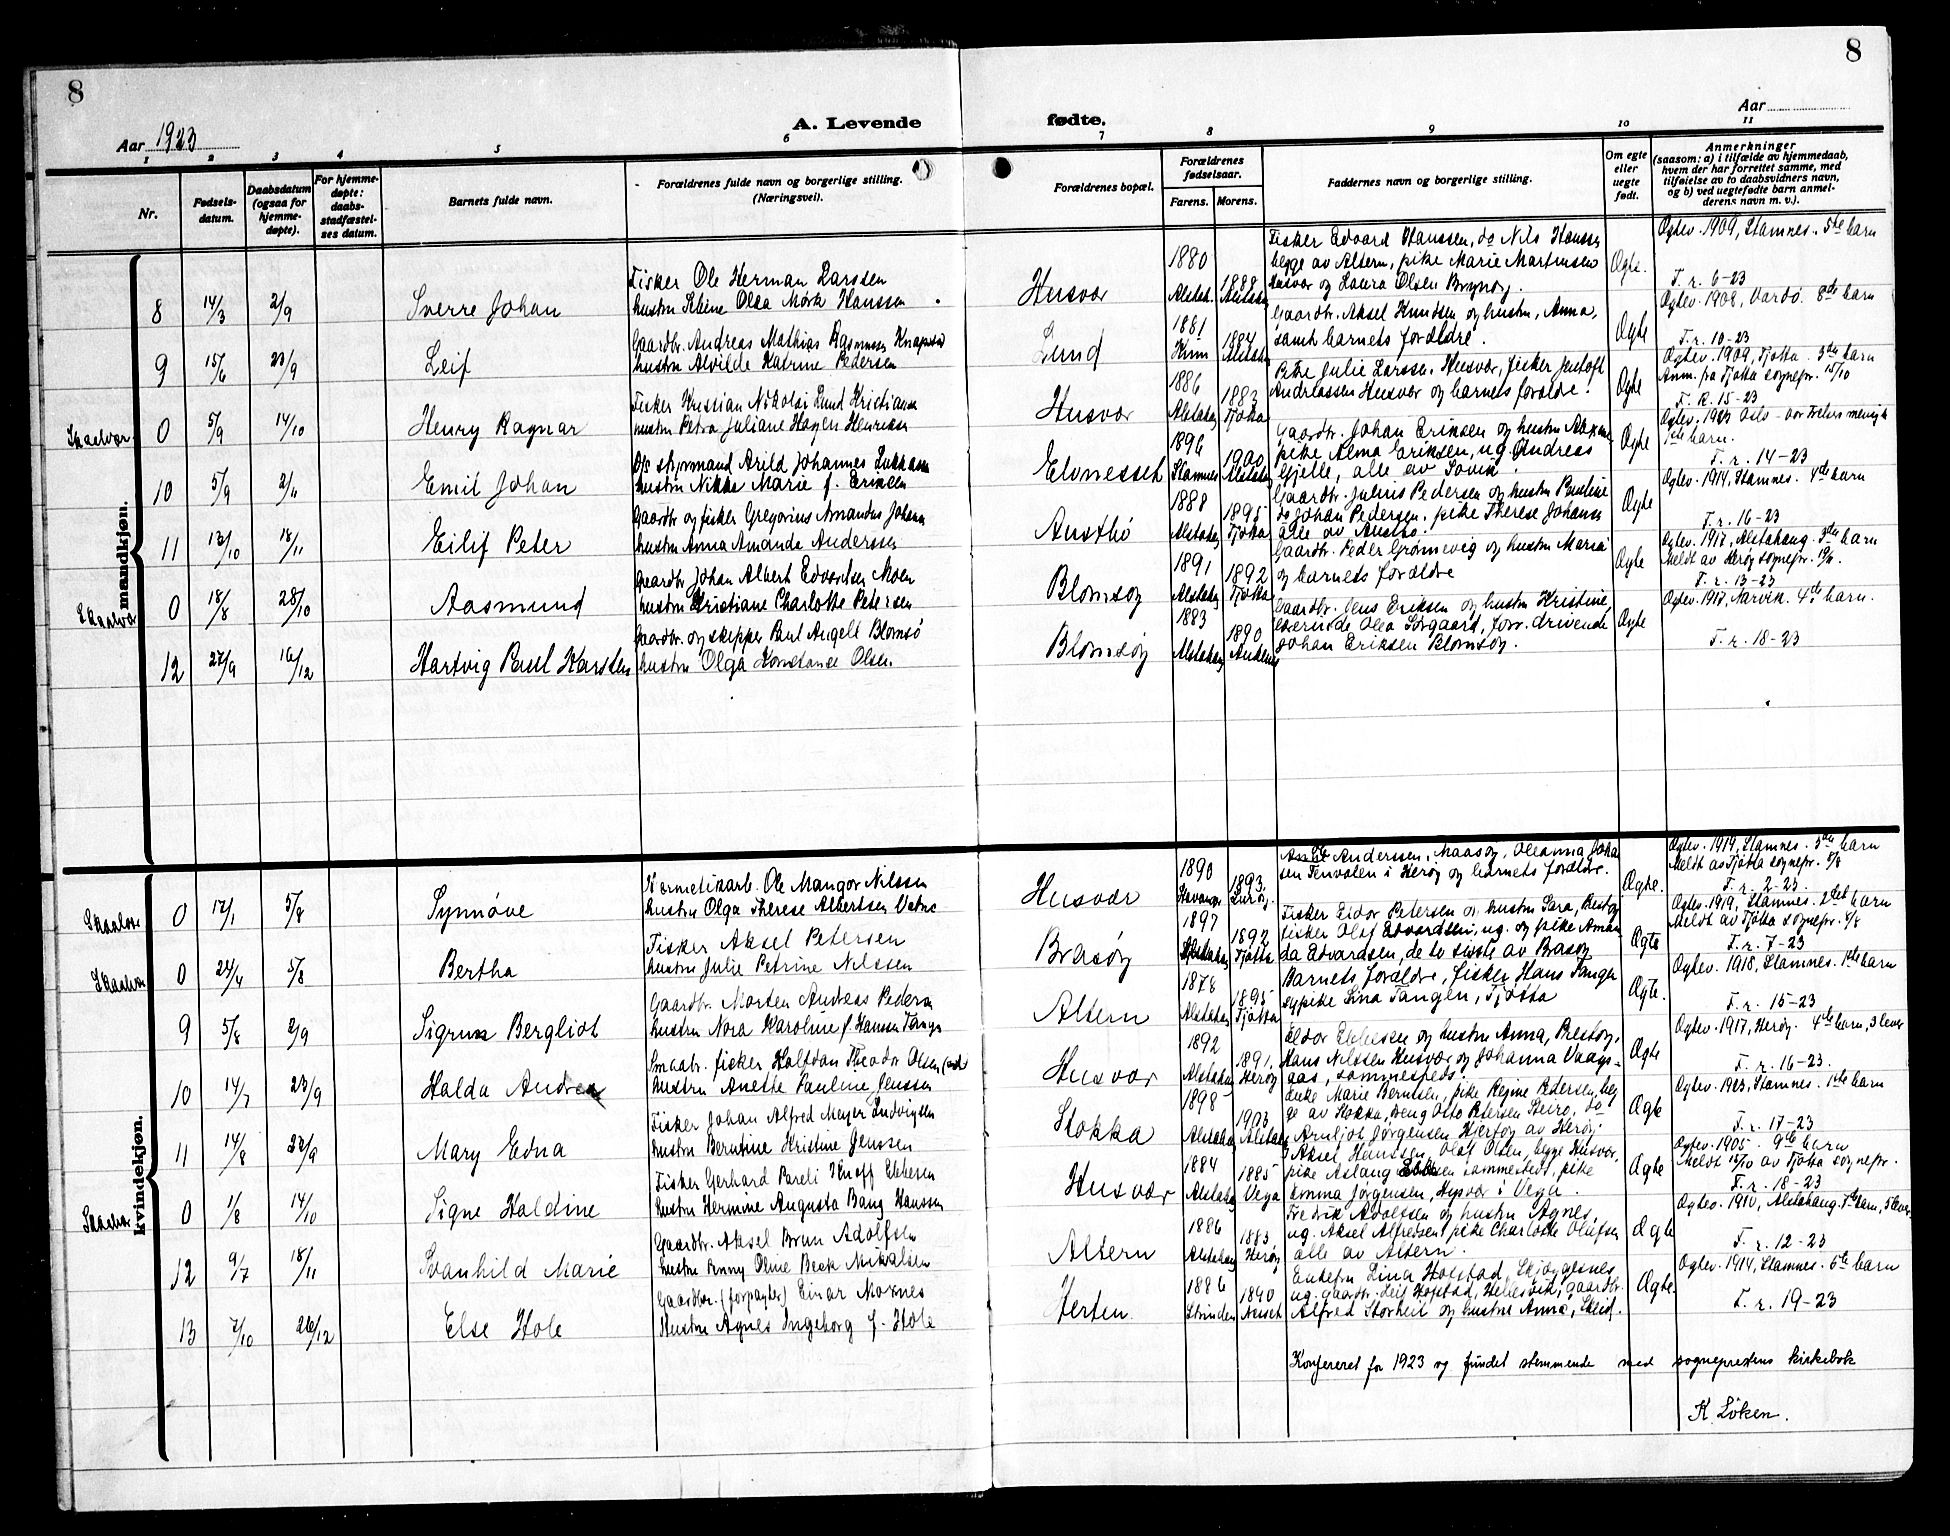 8
8
Aar 1923
A. Levende fødte.
Aar
1 2 3 4 5 6 7 8 9 10 11
Nr.
Fødsels-
datum.
Daabsdatum
(ogsaa for
hjemme-
døpte).
For hjemme-
døpte:
daabs-
stadfæstel-
ses datum.
Barnets fulde navn.
Forældrenes fulde navn og borgerlige stilling.
(Næringsvei).
Forældrenes bopæl.
Forældrenes
fødselsaar.
Farens. Morens.
Faddernes navn og borgerlige stilling.
Om egte
eller
uegte
født.
Anmerkninger
(saasom: a) i tilfælde av hjemmedaab,
hvem der har forrettet samme, med
tilføielse av to daabsvidners navn,
og b) ved uegtefødte barn anmel-
derens navn m. v.).
mandkjøn.
8 14/3 2/9 Sverre Johan
Fisker Ole Herman Larssen
hustru Oline Olea Mørk Hanssen
Husvær
1880 Alstah. 1888 Alstahg
Fisker Edvard Hanssen, do Nils Hanssen
begge av Altern, pike Marie Martinsen
Husvær og Laura Olsen Brynøy.
Ægte.
Ægtev. 1909, Stamnes. 5te barn
F. r. 6-23
9 15/6 23/9 Leif
Gaardbr. Andreas Mathias Rasmussen
hustru Alvilde Katrine Pedersen
Lund
1881 1884 Alstahg
Gaardbr. Aksel Knudsen og hustru, Anna,
samt barnets forældre.
Ægte
Ægtev. 1908, Vardø. 8de barn
F. r. 10-23
Skaalvær 0 5/9 14/10 Henry Ragnar
Fisker Kristian Nikolai Lund Kristiansen
hustru Petra Juliane Hagen Henriksen
Husvær
1886 Alstahg 1883 Tjøtta
Pike Julie Larssen, Husvær, fisker Justoft
Andreassen Husvær og barnets forældre.
Ægte
Ægtev. 1909, Tjøtta. 3die barn
Anm. fra Tjøtta sognepr. 15/10
F. R. 15-23
10 5/9 2/11 Emil Johan
styrmand Arild Johannes Lukkasen
hustru Nikka Marie f. Eriksen
Elvenesset
1896 Stamnes 1900 Alstahg
Gaardbr. Johan Eriksen og hustru
pike Alma Eriksen, ug. Andreas
Gjelle, alle av Søvik.
Ægte
Ægtev. 1923 Oslo - vor Frelsers menigh
1ste barn.
F. r. 14-23
11 13/10 18/11 Eilif Peter
Gaardbr og fisker Gregorius Amandus Johans
hustru Anna Amanda Anderssen
Austbø
1888 Alstahg 1895 Tjøtta
Gaardbr. Julius Pedersen og hustru Pauline
do Johan Pedersen, pike Therese Johans
alle av Austbø.
Ægte
Ægtev. 1914, Stamnes. 4de barn
F. r. 16-23
Skaalvær 0 18/8 28/10 Aasmund
Gaardbr Johan Albert Edvardsen Moen
hustru Kristiane Charlotte Petersen
Blomsøy
1891 Alstahg 1892 Tjøtta
Gaardbr. Peder Grønnevig og hustru Maria
og barnets forældre
Ægte
Ægtev. 1917, Alstahaug. 3die barn
Meldt av Herøy sognepr.
F. r. 13-23
12 27/9 16/12 Hartvig Paul Karsten
Gaardbr. og skipper Paul Angell Blomsø
hustru Olga Konstance Olsen.
Blomsøy
1883 Alstahg 1890
Gaardbr. Jens Eriksen og hustru Kristine,
Olea Sørgaard, forr. drivende
Johan Eriksen Blomsøy.
Ægte
Ægtev. 1917, Narvik. 4de barn.
F. r. 18-23
kvindekjøn.
Skaalvær 0 12/1 5/8 Synnøve
Hermetikarb. Ole Mangor Nilssen
hustru Olga Therese Albertsen
Husvær
1890 1893. Lurøy.
Anderssen, Maasøy, Oleanna Johan
sen Tenvalen i Herøy og barnets forældre.
Ægte.
Ægtev. 1919, Stamnes. 3die barn
Meldt av Tjøtta sognepr. 5/8
F. r. 2-23.
Skaalvær 0 24/4 5/8 Bertha
Fisker Aksel Petersen
hustru Julie Petrine Nilssen
Brasøy
1897 Alstahg 1892 Tjøtta
Fisker Eldor Petersen og hustru Sara, Prestøy
fisker Olaf Edvardsen, ug. og pike Aman
da Edvardsen, de to siste av Brasøy
Ægte
Ægtev. 1919, Stamnes. 2det barn
Meldt av Tjøtta sognepr. 5/8
F. r. 7-23
9 5/8 2/9 Sigrun Bergliot
Gaardbr. Morten Andreas Peders
hustru Nora Karoline f. Hanssen Tange
Altern
1878 Alstahg 1895 Tjøtta
Barnets forældre, fisker Hans Tangen
sypike Lina Tangen, Tjøtta
Ægte.
Ægtev. 1918, Stamnes. 1ste barn
F. r. 15-23
10 14/7 23/9 Halda Andrea
Smaabr. fisker Halfdan Theodor Olsen
hustru Anette Pauline Jenssen
Husvær
1892 Alstahg 1891. Herøy
Eldor Ebbesen og hustru Anna, Prestøy,
Hans Nilssen Husvær og Johanna Vaag-
aas, sammesteds.
Ægte
Ægtev. 1917, Herøy. 4de barn, 3 lever
F. r. 16-23.
11 14/8 23/9 Mary Edna
Fisker Johan Alfred Meyer Ludvigsen
hustru Berntine Kristine Jenssen
Stokka
1898 Alstahg 1903 Alstahg
Enke Marie Berntsen, pike Regine Petersen, beg
ge av Stokka, Beng Otto Petersen Steiro, do
Arnljot Jørgensen Hjertøy av Herøy.
Ægte
Ægtev. 1923, Stamnes. 1ste barn
F. r. 17-23
Skaalvær 0 1/8 14/10 Signe Haldine
Fisker Gerhard Pareli Knoff Ebbesen
hustru Hermine Augusta Bang Hanssen
Husvær
1884 Alstahg 1885 Vega
Aksel Hanssen, Olaf Olsen, begge Husvær,
pike Aslaug Ebbesen sammesteds, pike
Emma Jørgensen, Hysvær i Vega.
Ægte
Ægtev. 1905. 9de barn
Meldt 15/10 av Tjøtta sognepr.
F. r. 18-23
12 9/7 18/11 Svanhild Marie
Gaardbr. Aksel Brun Adolfsen
hustru Anny Oline Beck Mikalsen
Altern
1886 Alstahg 1883. Herøy
Fredrik Adolfsen og hustru Agnes,
ug. Aksel Alfredsen, pike Charlotte Olufsen
alle av Altern.
Ægte
Ægtev. 1910, Alstahaug. 7de barn, 5 lever
F. r. 12-23
13 7/10 26/12 Else Hole
Gaardbr. (forpagter) Einar Moxnes
Hustru Agnes Ingeborg f. Hole
Herten.
1886 Strinden 1890 Nesset
Enkefru Lina Hofstad,
ug. gaardbr. Leif Hofstad, Hellesvik, gaardbr.
Alfred Storheil og hustru Anna, Skeid.
Ægte.
Ægtev. 1914, Stamnes. 5te barn
F. r. 19-23
Konfereret for 1923 og fundet stemmende med sogneprestens kirkebok
K. Løken.